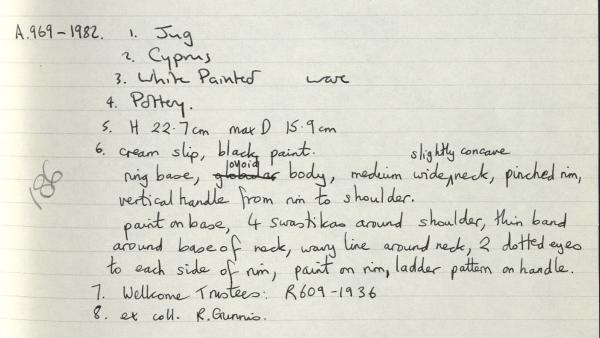 A.969-1982. 1. Jug
2. Cyprus
3. White Painted ware
4. Pottery.
5. H 22.7cm max D 15.9cm
6. cream slip, black paint.
ring base, globular ovoid body, medium wide, slightly concave neck, pinched rim,
vertical handle from rim to shoulder.
paint on base, 4 swastikas around shoulder, thin band
around base of neck, wavy line around neck, 2 dotted eyes
to each side of rim, paint on rim, ladder pattern on handle.
186
7. Wellcome Trustees: R609-1936
8. ex coll. R. Gunnis.